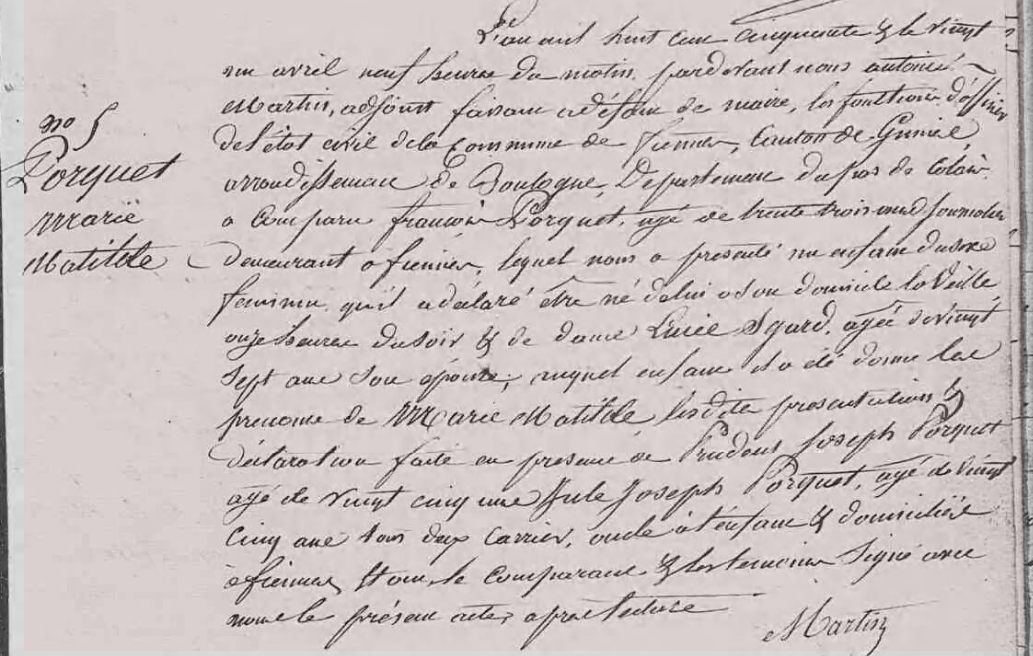 no 5
Porquet
Marie
Matilde
L'an mil huit cent cinquante & le vingt
un avril neuf heures du matin, pardevant nous antoine
Martin, adjoint faisant a défaut de maire, les fonctions d'officier
de l'état civil de la Commune de fiennes, Canton de Guines,
arrondissement de Boulogne, Département du pas de Calais,
a comparu françois Porquet, agé de trente trois ans journalier
demeurant a fiennes, lequel nous a presenté un enfant du sexe
feminin qu'il a déclaré être né de lui a son domicile la Veille
onze heures du soir & de dame Lucie Sgard, agée de vingt
sept ans son épouse, auquel enfant il a été donné les
prenoms de Marie Matilde les dites presentation &
déclaration faite en presence de Prudent Joseph Porquet
agé de vingt cinq ans Jule Joseph Porquet, agé de vingt
cinq ans tous deux Carrier, oncle à l'enfant & domiciliés
à fiennes, le comparant & les temoins signé avec
nous le présent acte, apres lecture
Martin